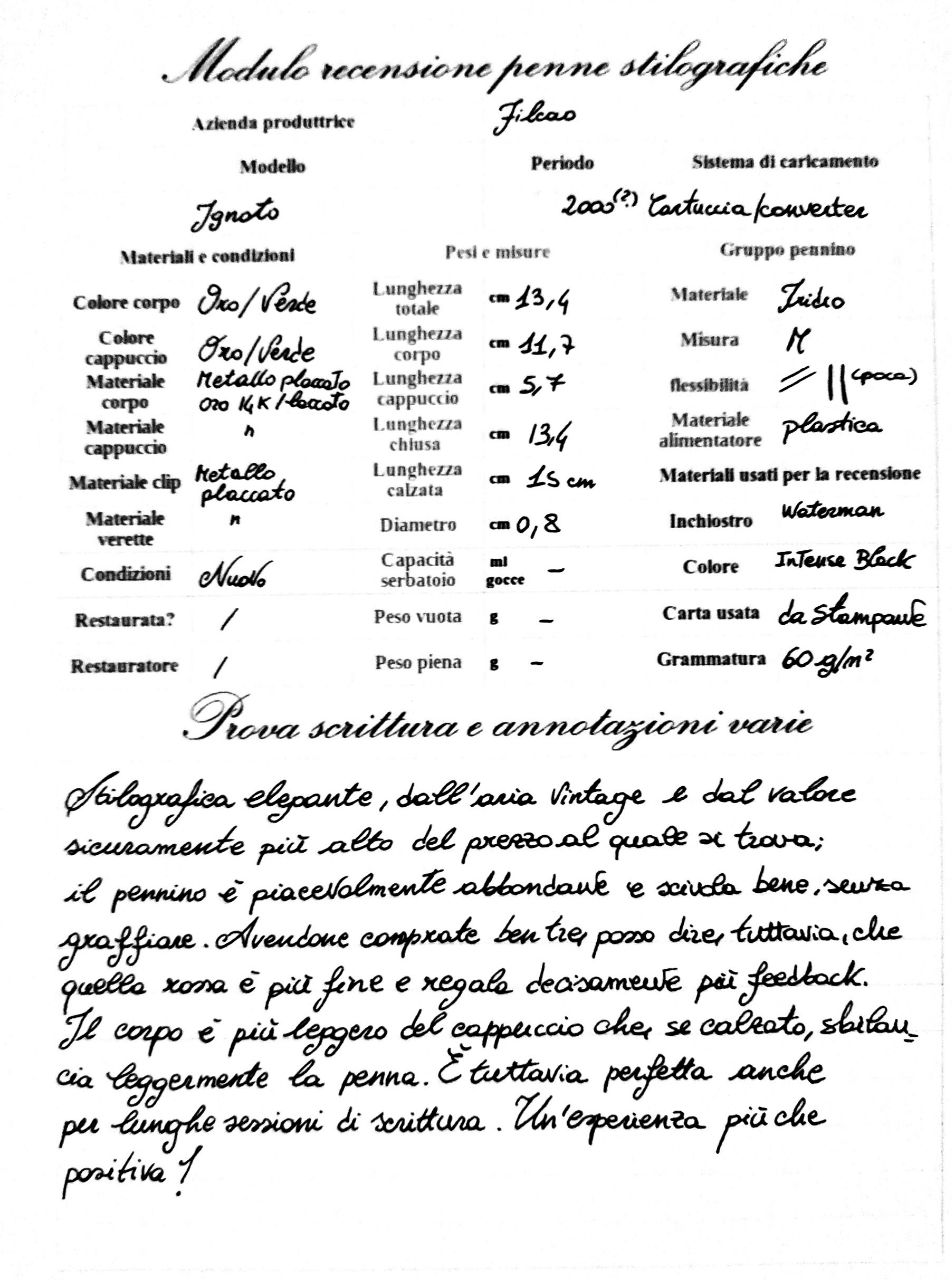 Modulo recensione penne stilografiche
Azienda produttrice Filcao
Modello Periodo Sistema di caricamento
Ignoto 2000(?) Cartuccia/converter
Materiali e condizioni Pesi e misure Gruppo pennino
Colore corpo Oro/Verde Lunghezza totale cm 13,4 Materiale Iridio
Colore cappuccio Oro/Verde Lunghezza corpo cm 11,7 Misura M
Materiale corpo Metallo placcato oro 14K/laccato Lunghezza cappuccio cm 5,7 flessibilità (poca)
Materiale cappuccio " Lunghezza chiusa cm 13,4 Materiale alimentatore plastica
Materiale clip Metallo placcato Lunghezza calzata cm 15 cm Materiali usati per la recensione
Materiale verette " Diametro cm 0,8 Inchiostro Waterman
Condizioni Nuovo Capacità serbatoio ml gocce – Colore Intense Black
Restaurata? / Peso vuota g – Carta usata da stampante
Restauratore / Peso piena g – Grammatura 60 g/m²
Prova scrittura e annotazioni varie
Stilografica elegante, dall'aria vintage e dal valore
sicuramente più alto del prezzo al quale si trova;
il pennino è piacevolmente abbondante e scivola bene, senza
graffiare. Avendone comprate ben tre, posso dire, tuttavia, che
quella rossa è più fine e regala decisamente più feedback.
Il corpo è più leggero del cappuccio che, se calzato, sbilan=
cia leggermente la penna. È tuttavia perfetta anche
per lunghe sessioni di scrittura. Un'esperienza più che
positiva!